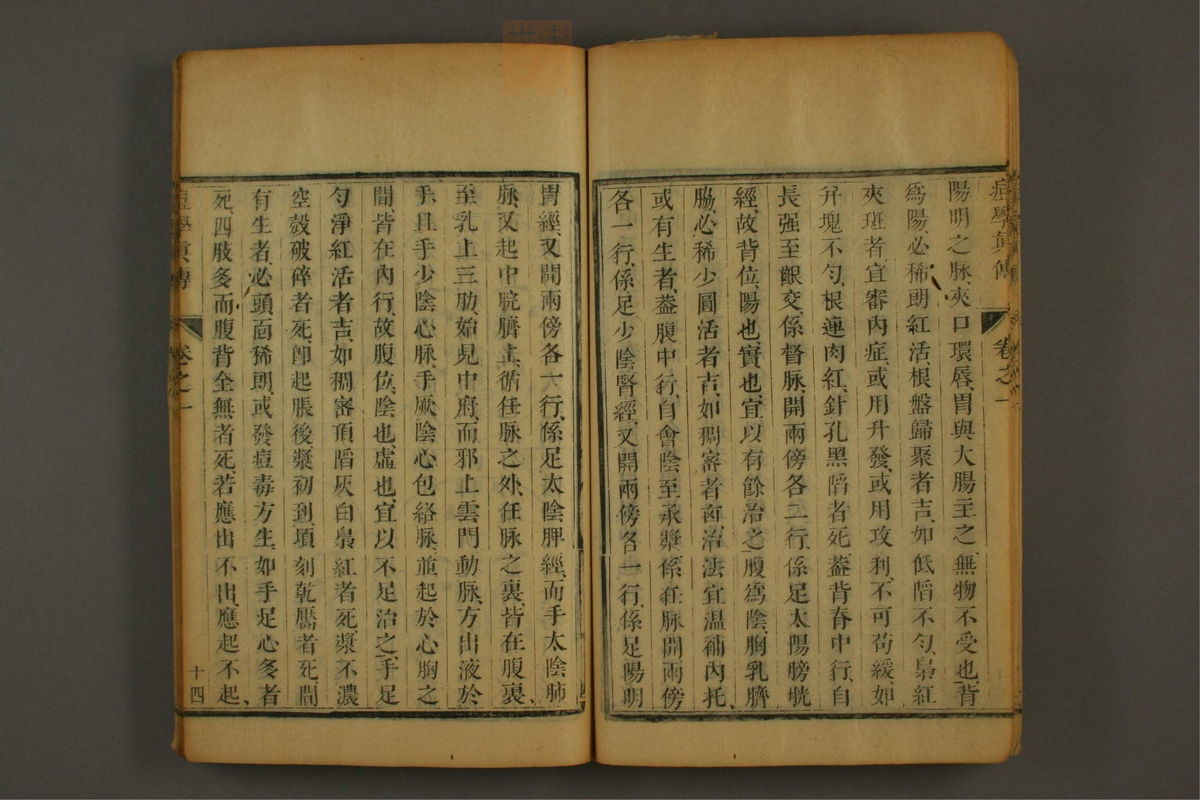 痘學眞傳 卷之一
陽明之脉、夾口環唇、胃與大腸主之、無物不受也、背
爲陽、必稀朗紅活、根盤歸聚者吉、如低陷不勻、梟紅
夾斑者、宜審內症、或用升發、或用攻利、不可苟緩、如
片塊不勻、根連肉紅、針孔黑陷者死、葢背脊中行、自
長强至齦交、係督脉、開兩傍各二行、係足太陽膀胱
經、故背位、陽也、實也、宜以有餘治之、腹爲陰、胸乳臍
脇、必稀少圓活者吉、如稠密者凶、治法宜温補內托、
或有生者、葢腹中行、自會陰至承漿、係任脉、開兩傍
各一行、係足少陰腎經、又開兩傍各一行、係足陽明
胃經、又開兩傍各一行、係足太陰脾經、而手太陰肺
脉、又起中脘臍上、循任脉之外、任脉之裏、皆在腹裏、
至乳上三肋、始見中府、而邪上雲門動脉、方出液於
手、且手少陰心脉、手厥陰心包絡脉、並起於心胸之
間、皆在內行、故腹位、陰也、虛也、宜以不足治之、手足
勻淨紅活者吉、如稠密頂陷灰白梟紅者死、漿不濃
空殼破碎者死、卽起脹後、漿初到、頃刻乾靨者死、間
有生者、必頭面稀朗、或發痘毒方生、如手足心多者
死、四肢多而腹背全無者死、若應出不出、應起不起、
痘學眞傳 卷之一
十四